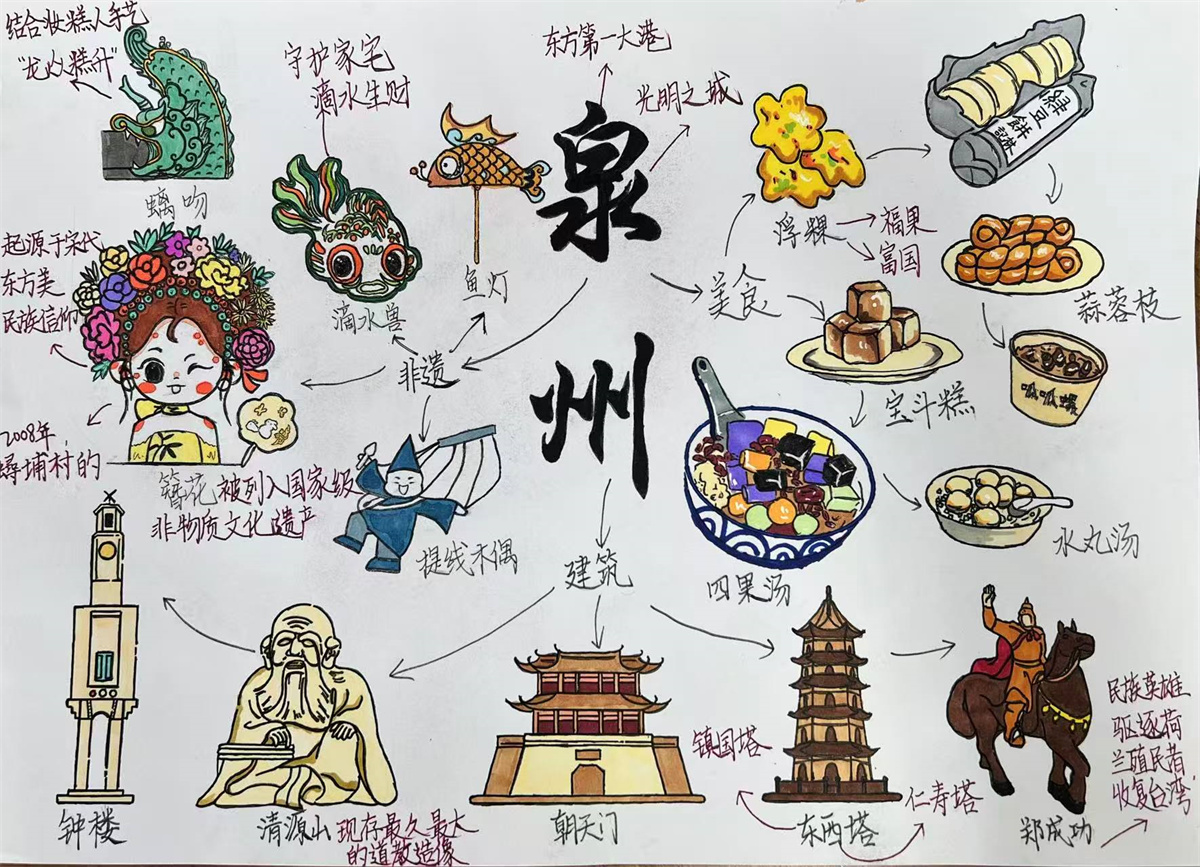 结合妆糕人手艺
"龙以糕升"
螭吻
守护家宅
滴水生财
滴水兽
鱼灯
东方第一大港
光明之城
泉
州
起源于宋代
东方美
民族信仰
2008年,
蟳埔村的
簪花 被列入国家级
非物质文化遗产
非遗
提线木偶
美食
浮粿
福果
富国
绿豆饼
蒜蓉枝
宝斗糕
呱呱螺
四果汤
水丸汤
建筑
钟楼
清源山 现存最久最大
的道教造像
朝天门
镇国塔
东西塔
仁寿塔
郑成功
民族英雄
驱逐荷
兰殖民者
收复台湾